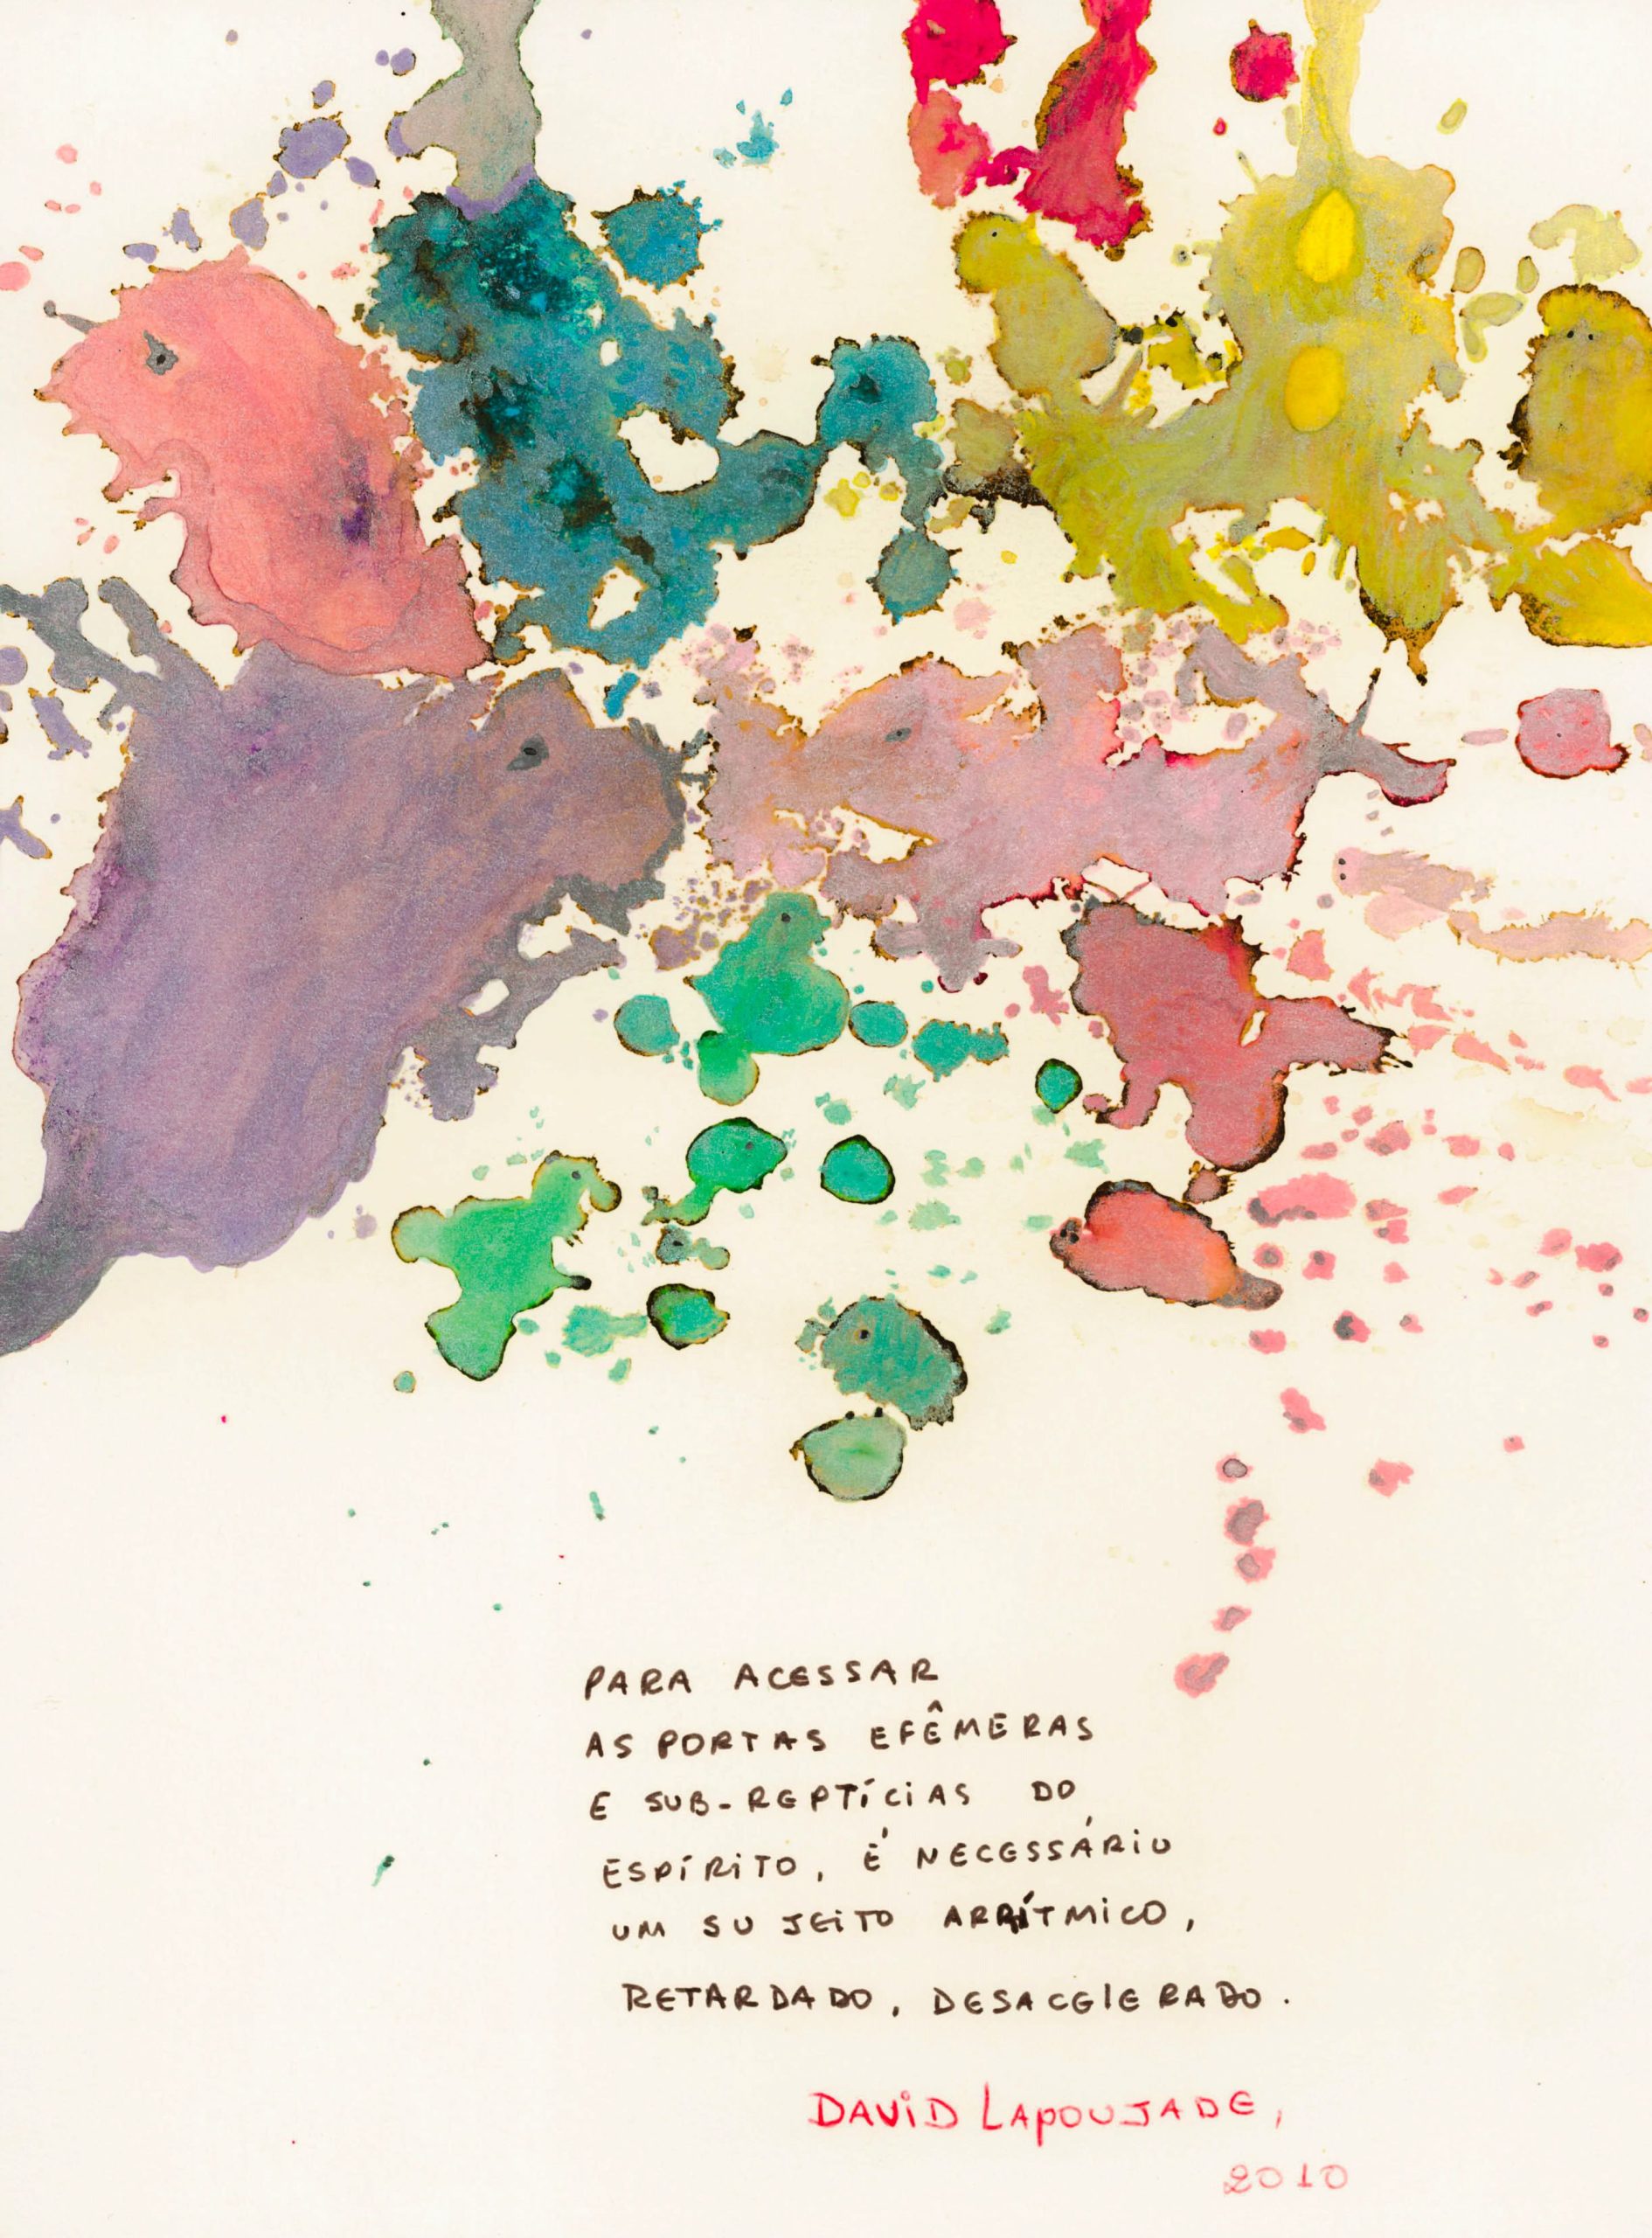 PARA ACESSAR
AS PORTAS EFÊMERAS
E SUB-REPTÍCIAS DO
ESPÍRITO, É NECESSÁRIO
UM SUJEITO ARRÍTMICO,
RETARDADO, DESACELERADO.
DAVID LAPOUJADE,
2010